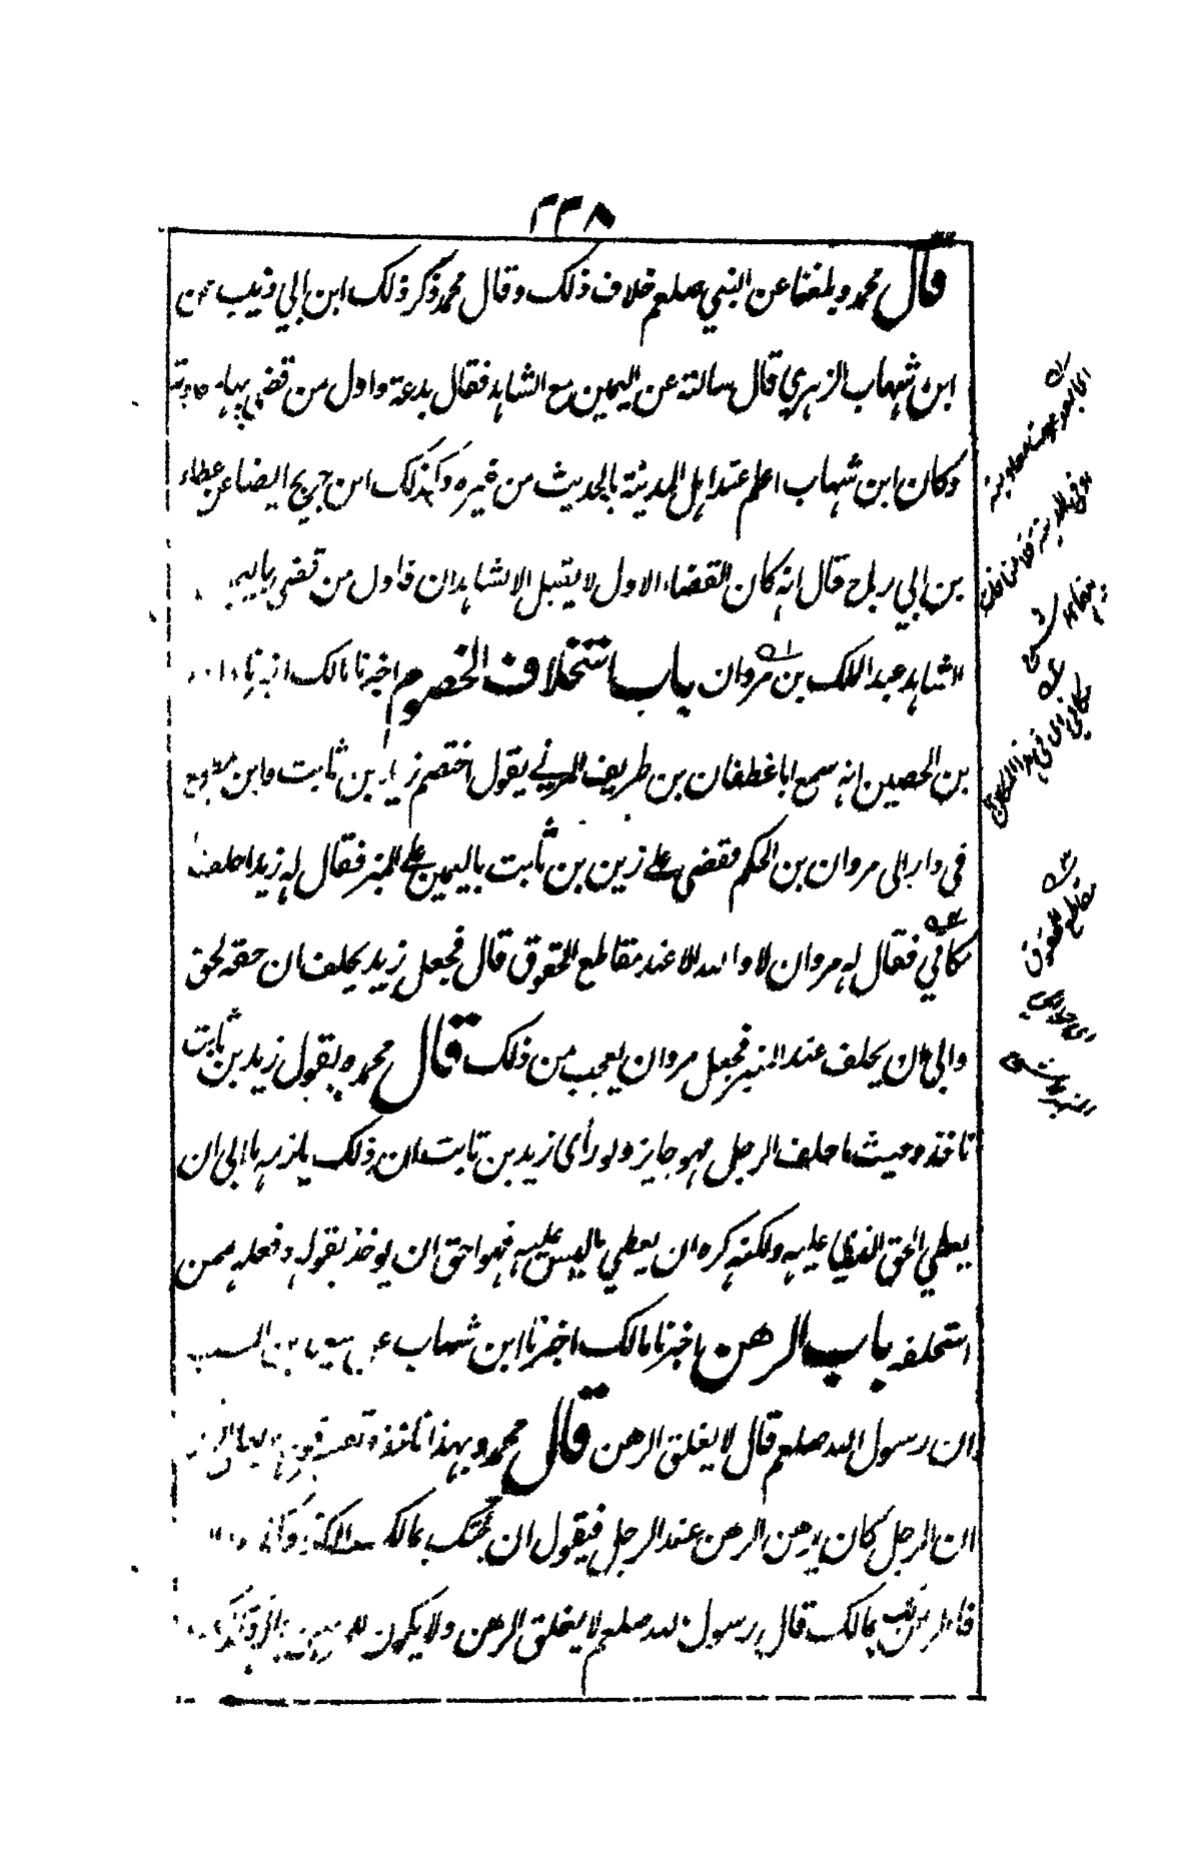 ٢٣٨
قال محمد وبلغنا عن النبي صلعم خلاف ذلك وقال محمد ذكر ذلك ابن ابي ذيب عن
ابن شهاب الزهري قال سالته عن اليمين مع الشاهد فقال بدعة واول من قضى بها معاوية
وكان ابن شهاب اعلم عند اهل المدينة بالحديث من غيره وكذلك ابن جريج ايضا عن عطاء
بن ابي رباح قال انه كان القضاء الاول لا يقبل الا شاهدان فاول من قضى باليمين
الشاهد عبد الملك بن مروان باب استخلاف الخصوم اخبرنا مالك اخبرنا داود
بن الحصين انه سمع ابا غطفان بن طريف المري يقول اختصم زيد بن ثابت وابن مطيع
في دار الى مروان بن الحكم فقضى على زين بن ثابت باليمين على المنبر فقال له زيد احلف
مكاني فقال له مروان لا والله الا عند مقاطع الحقوق قال فجعل زيد يحلف ان حقه لحق
وابى ان يحلف عند المنبر فجعل مروان يعجب من ذلك قال محمد وبقول زيد بن ثابت
ناخذ وحيث ما حلف الرجل فهو جايز ولو رأى زيد بن ثابت ان ذلك يلزمه ما ابى ان
يعطي الحق الذي عليه ولكنه كره ان يعطي ما ليس عليه فهو احق ان يوخذ بقوله وفعله ممن
استحلفه باب الرهن اخبرنا مالك اخبرنا ابن شهاب عن سعيد بن المسيب
ان رسول الله صلعم قال لا يغلق الرهن قال محمد وبهذا ناخذ وتفسير قوله لا يغلق الرهن
ان الرجل كان يرهن الرهن عند الرجل فيقول ان جئتك بمالك الى كذا وكذا
بمالك قال رسول الله صلعم لا يغلق الرهن ولا يكون للمرتهن
مقاطع الحقوق